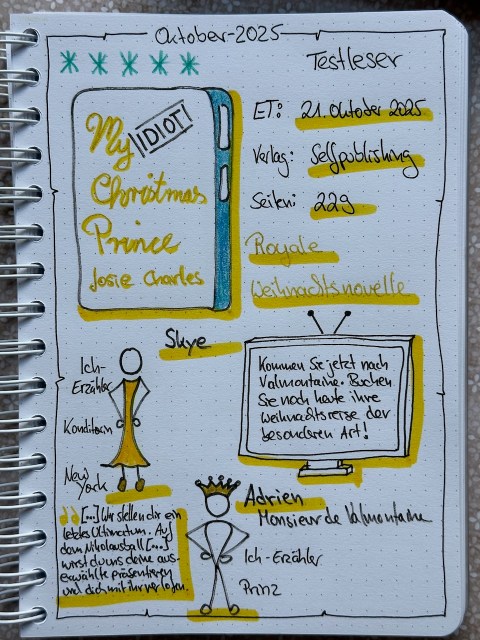 Oktober-2025
Testleser
My IDIOT!
Christmas
Prince
Josie Charles
ET: 21. Oktober 2025
Verlag: Selfpublishing
Seiten: 229
Royale
Weihnachtsnovelle
Skye
Ich-
Erzähler
Konditorin
New
York
Kommen Sie jetzt nach
Valmontaine. Buchen
Sie noch heute ihre
Weihnachtsreise der
besonderen Art!
"[...] Wir stellen dir ein
letztes Ultimatum. Auf
dem Nikolausball [...]
wirst du uns deine aus-
erwählte präsentieren
und dich mit ihr verloben.
Adrien
Monsieur de Valmontaine
Ich-Erzähler
Prinz